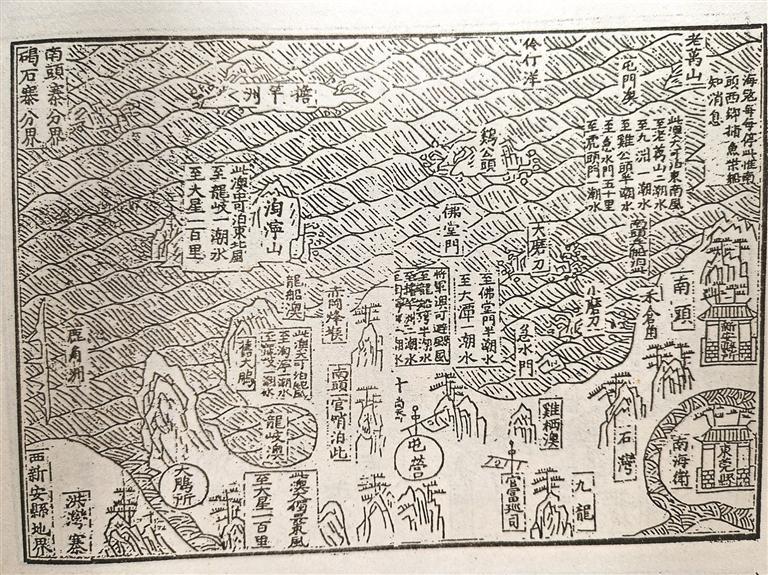 老萬山
海冠每每停此惟南
頭西鄉捕魚柴船
知消息
屯門澳
此澳大可泊東南風
至老萬山二潮水
至九洲一潮水
至雞公頭半潮水
至急水門五十里
至虎頭門一潮水
伶仃洋
擔竿洲
南頭寨分界
碣石寨分界
鷄公頭
佛堂門
大磨刀
小磨刀
急水門
南頭
新安縣所
至佛堂門半潮水
至大潭一潮水
將軍澳可避颶風
此澳可泊東北風
至龍岐一潮水
至大星一百里
龍船澳
赤岡烽堠
南頭一官哨泊此
舊大鵬
龍岐澳
鹿角洲
大鵬所
此澳獨畏東風
至大星一百里
屯營
雞栖澳
官富巡司
石灣
九龍
南海衛
東莞縣
洪灣寨
西新安縣地界